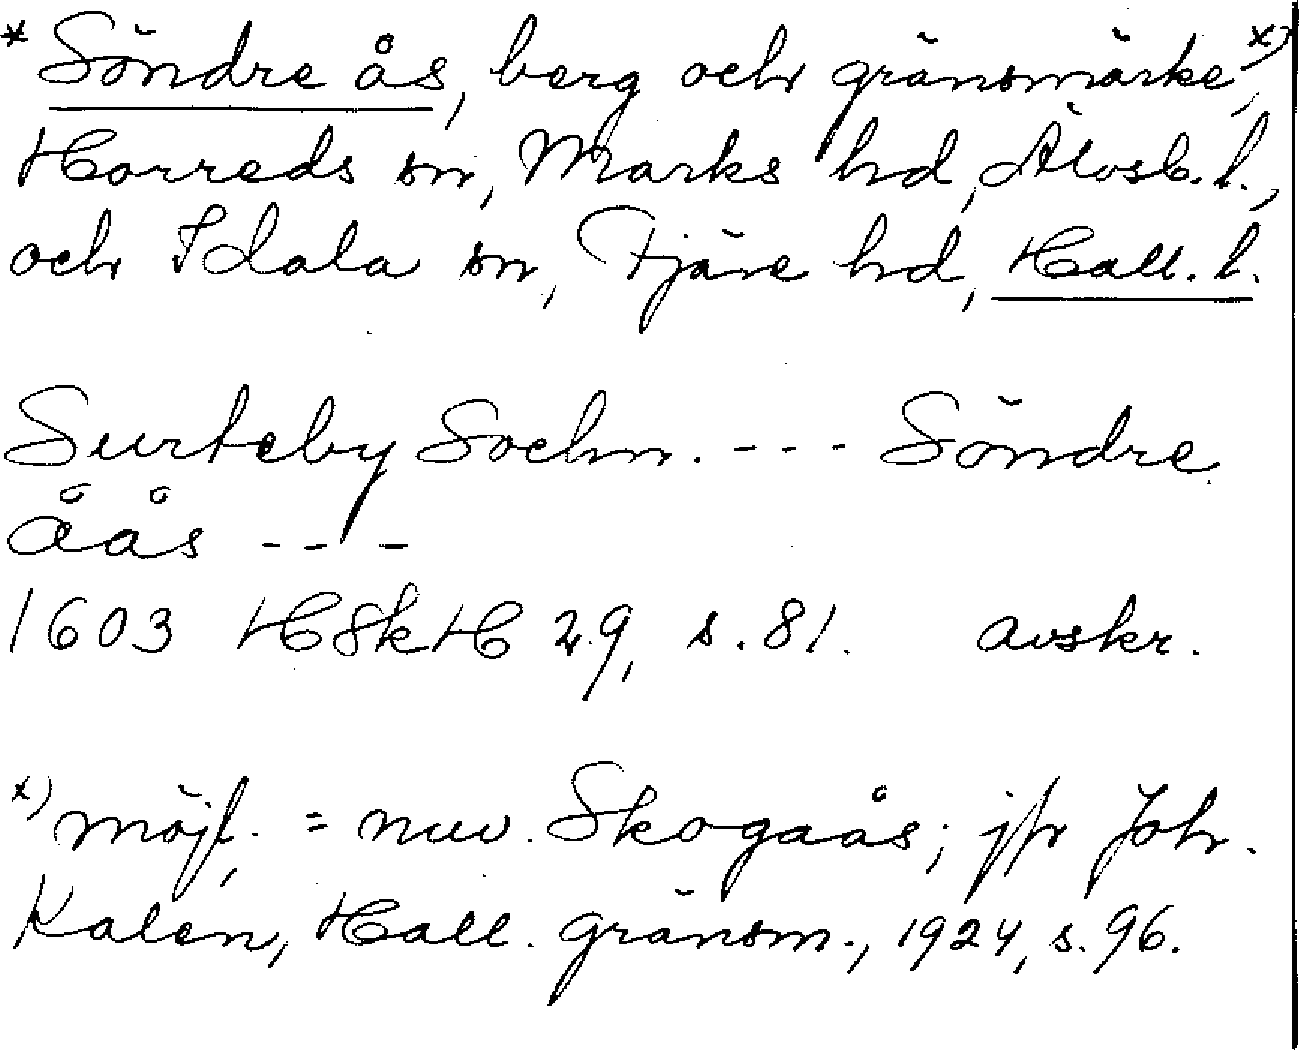 * Söndre ås, berg och gränsmärke, x)
Horreds sn, Marks hd, Älvsb. l.,
och Idala sn, Fjäre hd, Hall. l.
Surteby Sochn. --- Söndre
åås ---
1603 HSkH 29, s. 81. avskr.
x) möjl. = nuv. Skogaås; jfr Joh.
Kalén, Hall. gränsm., 1924, s. 96.